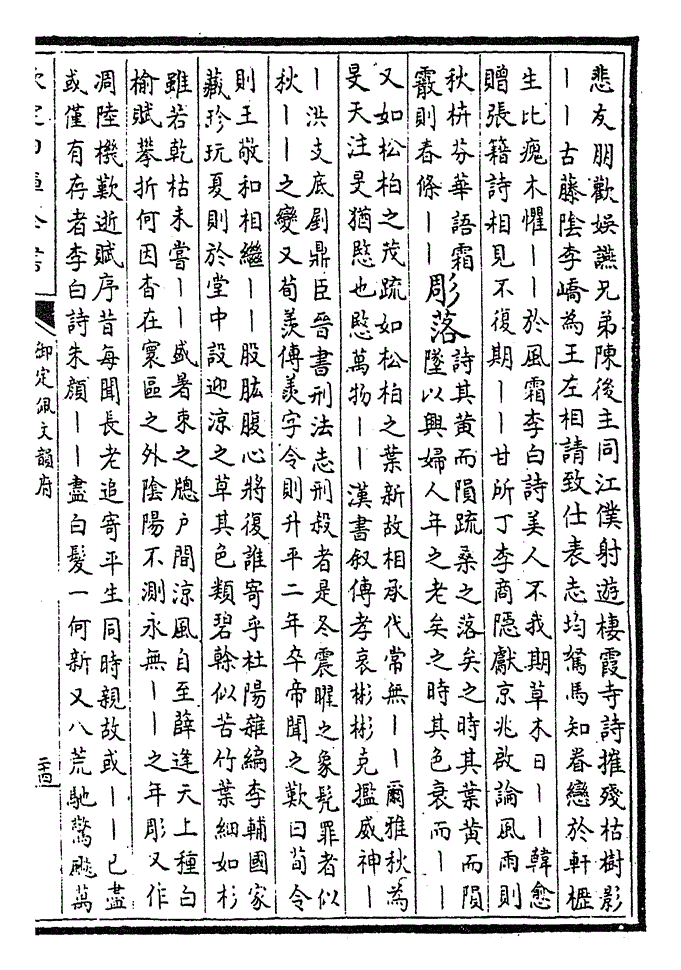 悲友朋歡娛讌兄弟陳後主同江僕射遊棲霞寺詩摧殘枯樹影
丨丨古藤陰李嶠為王左相請致仕表志均駑馬知眷戀於軒櫪
生比瘣木懼丨丨於風霜李白詩美人不我期草木日丨丨韓愈
贈張籍詩相見不復期丨丨甘所丁李商隱獻京兆啟論風雨則
秋枿芬華語霜
霰則春條丨丨
彫落
詩其黃而隕疏桑之落矣之時其葉黃而隕
墜以興婦人年之老矣之時其色衰而丨丨
又如松柏之茂疏如松柏之葉新故相承代常無丨丨爾雅秋為
旻天注旻猶愍也愍萬物丨丨漢書叙傳孝哀彬彬克㩜威神丨
丨洪支底劌鼎臣晉書刑法志刑殺者是冬震曜之象髡罪者似
秋丨丨之變又荀羨傳羨字令則升平二年卒帝聞之歎曰荀令
則王敬和相繼丨丨股肱腹心將復誰寄乎杜陽雜編李輔國家
藏珍玩夏則於堂中設迎涼之草其色類碧榦似苦竹葉細如杉
雖若乾枯未嘗丨丨盛暑束之牕戶間涼風自至薛逢天上種白
榆賦攀折何因杳在寰區之外陰陽不測永無丨丨之年彫又作
凋陸機歎逝賦序昔每聞長老追寄平生同時親故或丨丨已盡
或僅有存者李白詩朱顏丨丨盡白髮一何新又八荒馳驚飈萬
御定佩文韻府
二十四